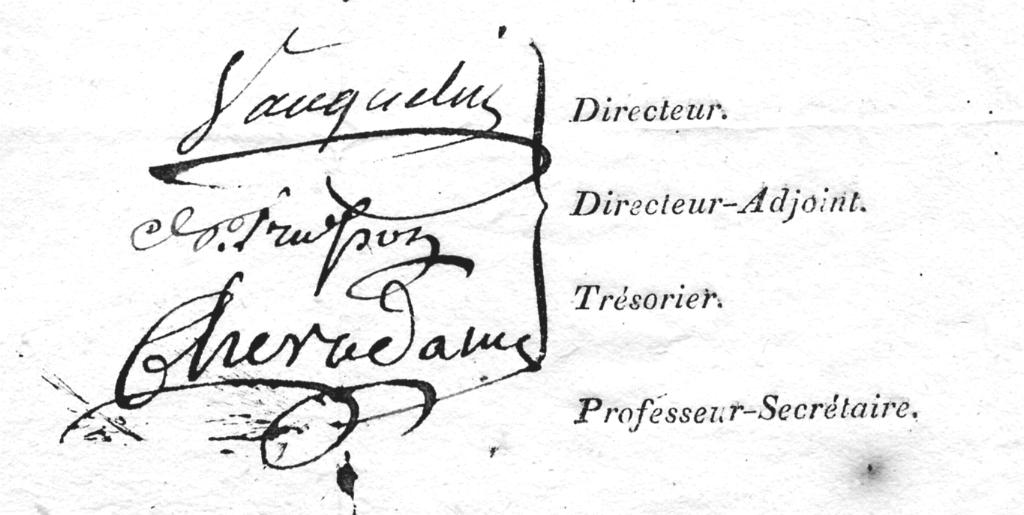 Vauquelin
Directeur.
Directeur-Adjoint.
Trusson
Trésorier.
Cheradame
Professeur-Secrétaire.